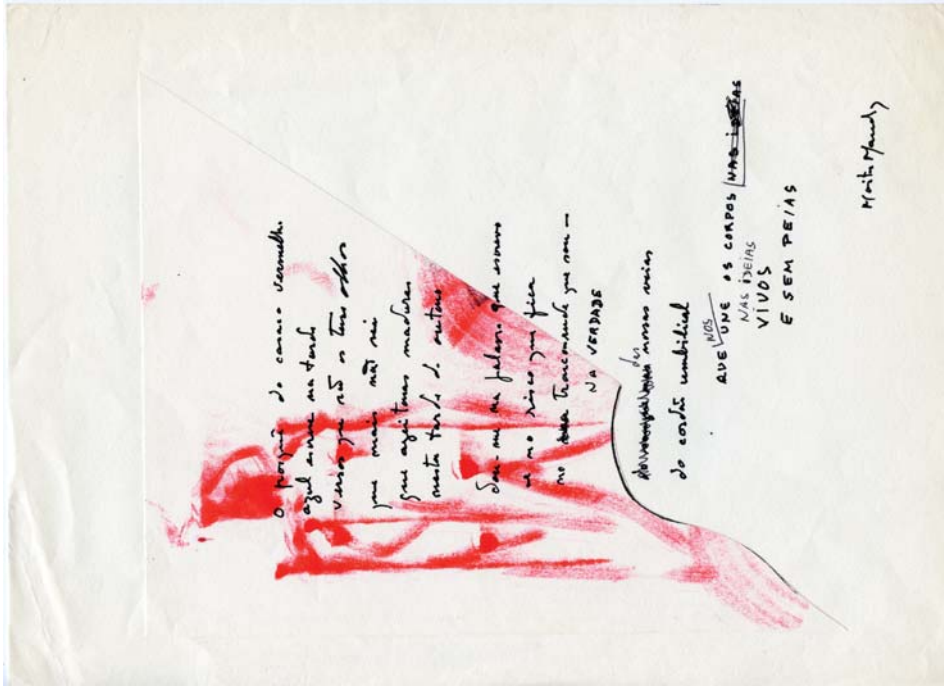 O porquê do vermelho
azul escreve na tarde
versos que são os teus olhos
que mais não sei
que azeitonas maduras
nesta tarde de outono
dou-me na palavra que escrevo
e no risco que fica
no que sou —
NA VERDADE
das nossas vias
do cordão umbilical
QUE NOS UNE OS CORPOS NAS IDEIAS
NAS IDEIAS
VIVOS
E SEM PEIAS
Moita Macedo